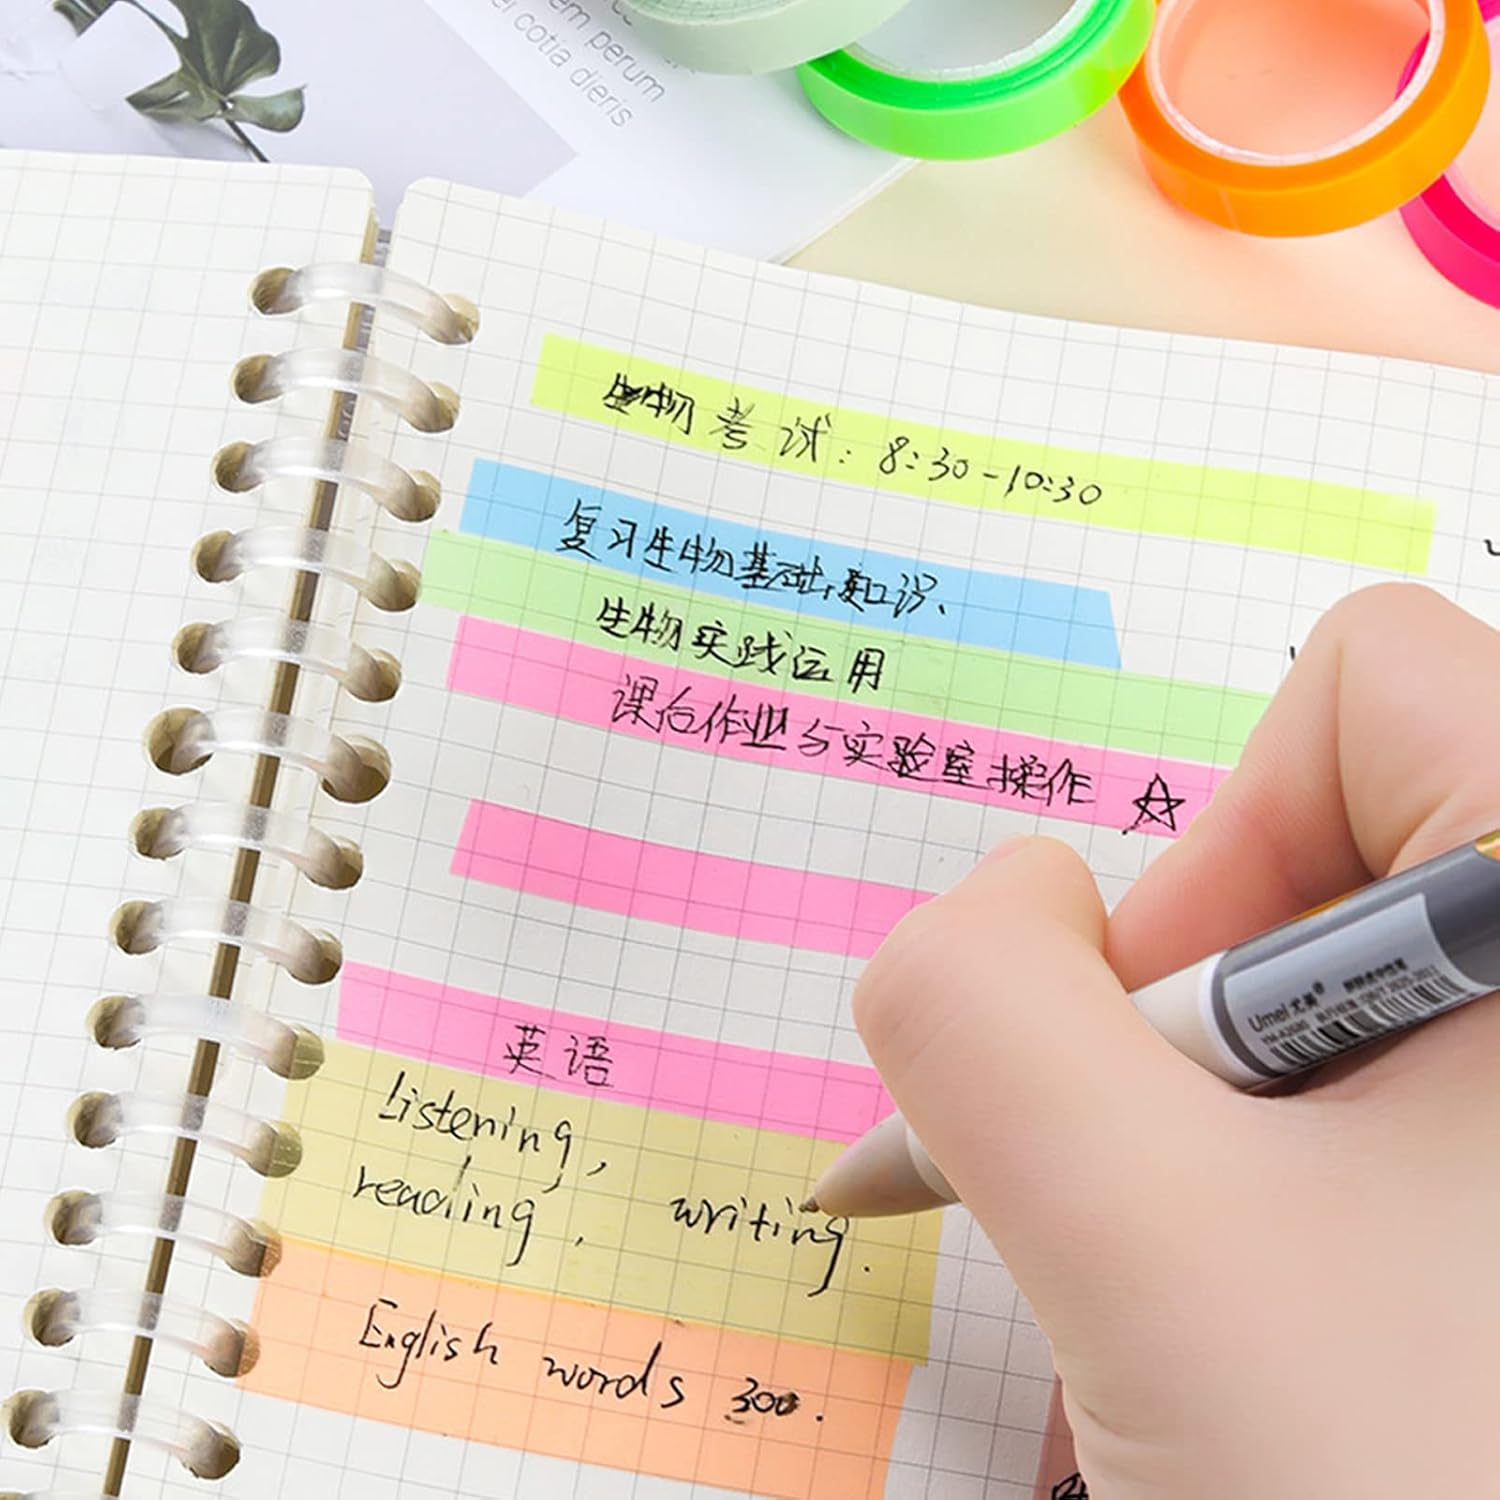 em perum
cotia dieris
生物考试:8:30-10:30
复习生物基础知识、
生物实践运用
课后作业与实验室操作 ☆
英语
Listening,
reading, writing.
English words 300.
Umei 尤美®